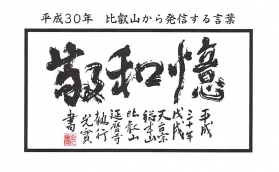 平成30年　比叡山から発信する言葉
憶和敬
平成
三十年
戊戌
天台宗
総本山
比叡山
延暦寺
執行
光實
書